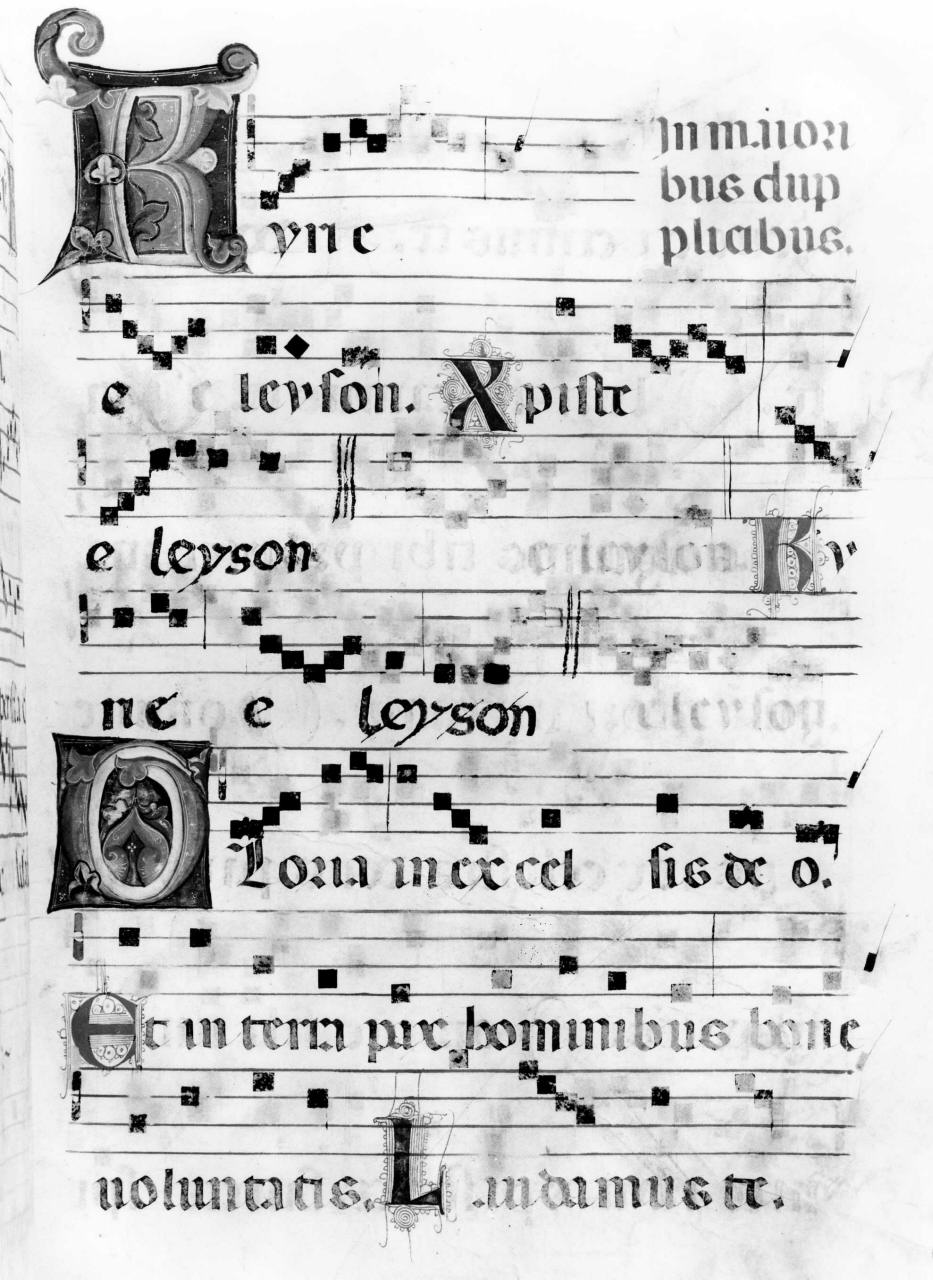 Kyrie
In maiori
bus dup
plicibus.
e e leyson. Xpiste
e leyson Ky
rie e leyson
Gloria in excel sis deo.
Et in terra pax hominibus bone
uoluntatis. Laudamus te.